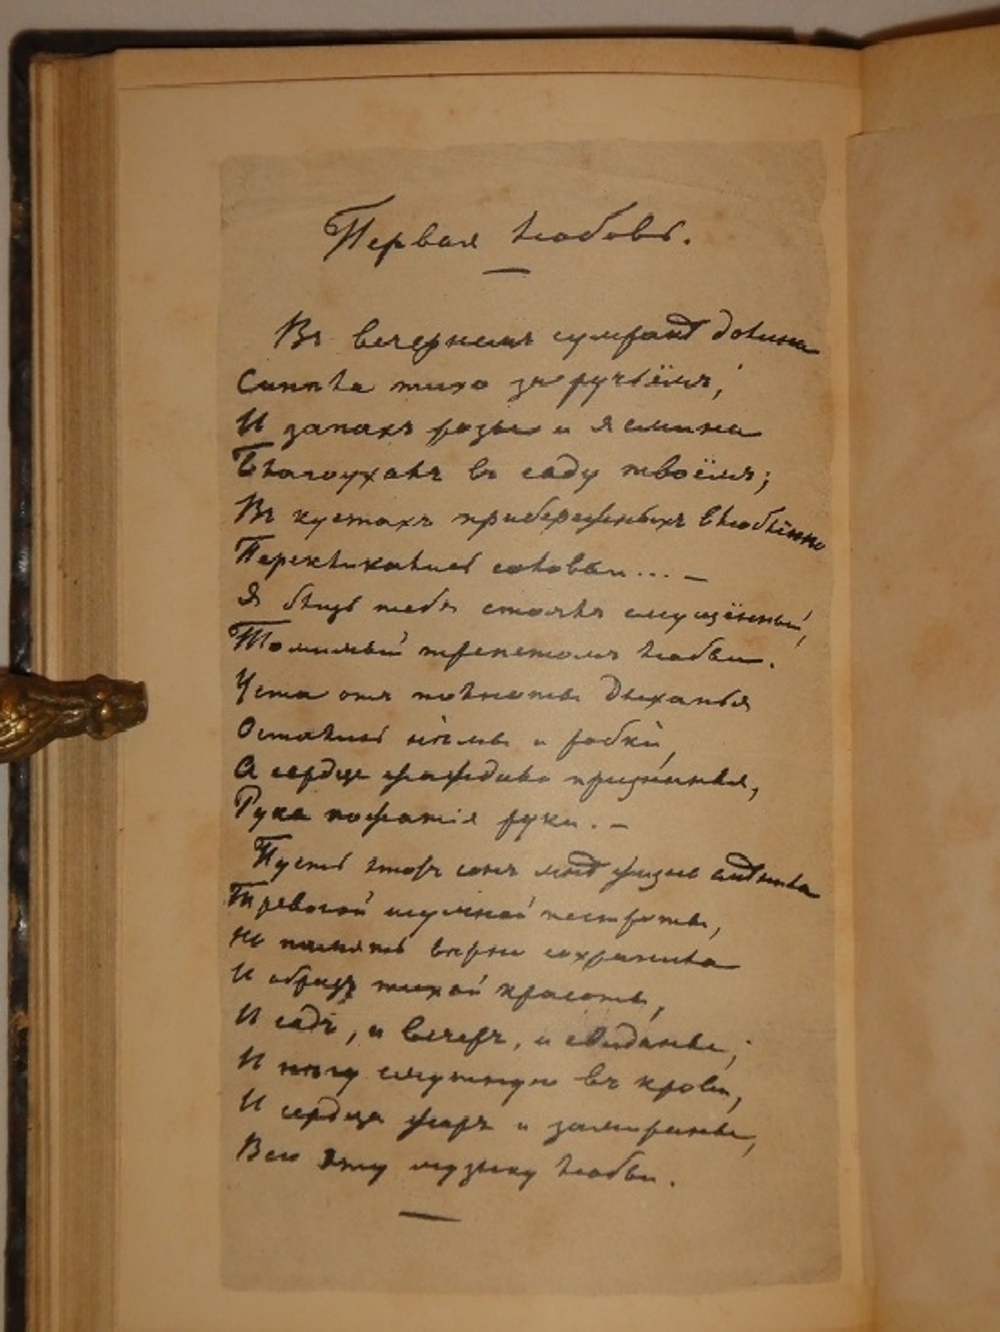 Первая любовь.
Въ вечернемъ сумракѣ долина
Синѣла тихо за ручьёмъ,
И запахъ розы и ясмина
Благоухалъ въ саду твоёмъ;
Въ кустахъ прибережныхъ влюблённо
Перекликались соловьи... —
Я близь тебя стоялъ смущённый,
Томимый трепетомъ любви.
Уста отъ полноты дыханья
Остались нѣмы и робки,
А сердце жаждало признанья,
Рука пожатія руки. —
Пусть этотъ сонъ мнѣ жизнь смѣнила
Тревогой шумной пестроты,
Но память вѣрно сохранила
И образъ тихой красоты,
И садъ, и вечеръ, и свиданье,
И нѣгу смутную въ крови,
И сердца жаръ и замиранье,
Всю эту музыку любви.